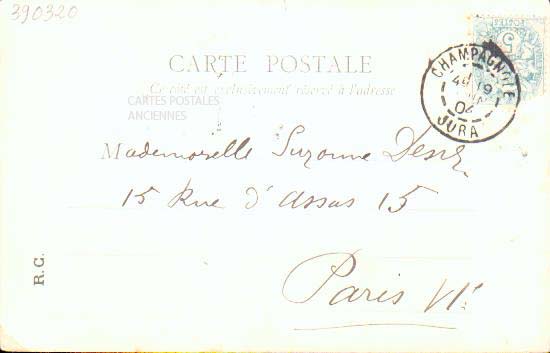 390320
CARTE POSTALE
Ce côté est exclusivement réservé à l'adresse
CARTES POSTALES
ANCIENNES
CHAMPAGNOLE
JURA
Mademoiselle Suzanne
15 Rue d'Assas 15
Paris VIe
R.C.